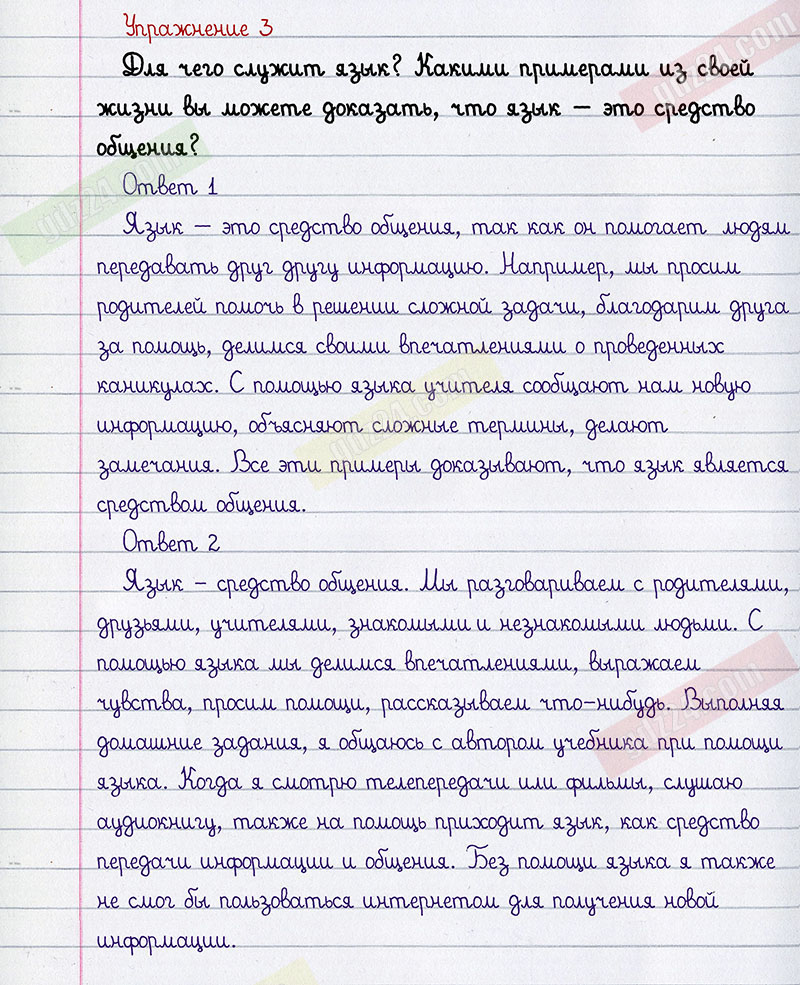 Упражнение 3
Для чего служит язык? Какими примерами из своей
жизни вы можете доказать, что язык — это средство
общения?
Ответ 1
Язык — это средство общения, так как он помогает людям
передавать друг другу информацию. Например, мы просим
родителей помочь в решении сложной задачи, благодарим друга
за помощь, делимся своими впечатлениями о проведенных
каникулах. С помощью языка учителя сообщают нам новую
информацию, объясняют сложные термины, делают
замечания. Все эти примеры доказывают, что язык является
средством общения.
Ответ 2
Язык – средство общения. Мы разговариваем с родителями,
друзьями, учителями, знакомыми и незнакомыми людьми. С
помощью языка мы делимся впечатлениями, выражаем
чувства, просим помощи, рассказываем что-нибудь. Выполняя
домашние задания, я общаюсь с автором учебника при помощи
языка. Когда я смотрю телепередачи или фильмы, слушаю
аудиокнигу, также на помощь приходит язык, как средство
передачи информации и общения. Без помощи языка я также
не смог бы пользоваться интернетом для получения новой
информации.
gdz24.com
gdz24.com
gdz24.com
gdz24.com